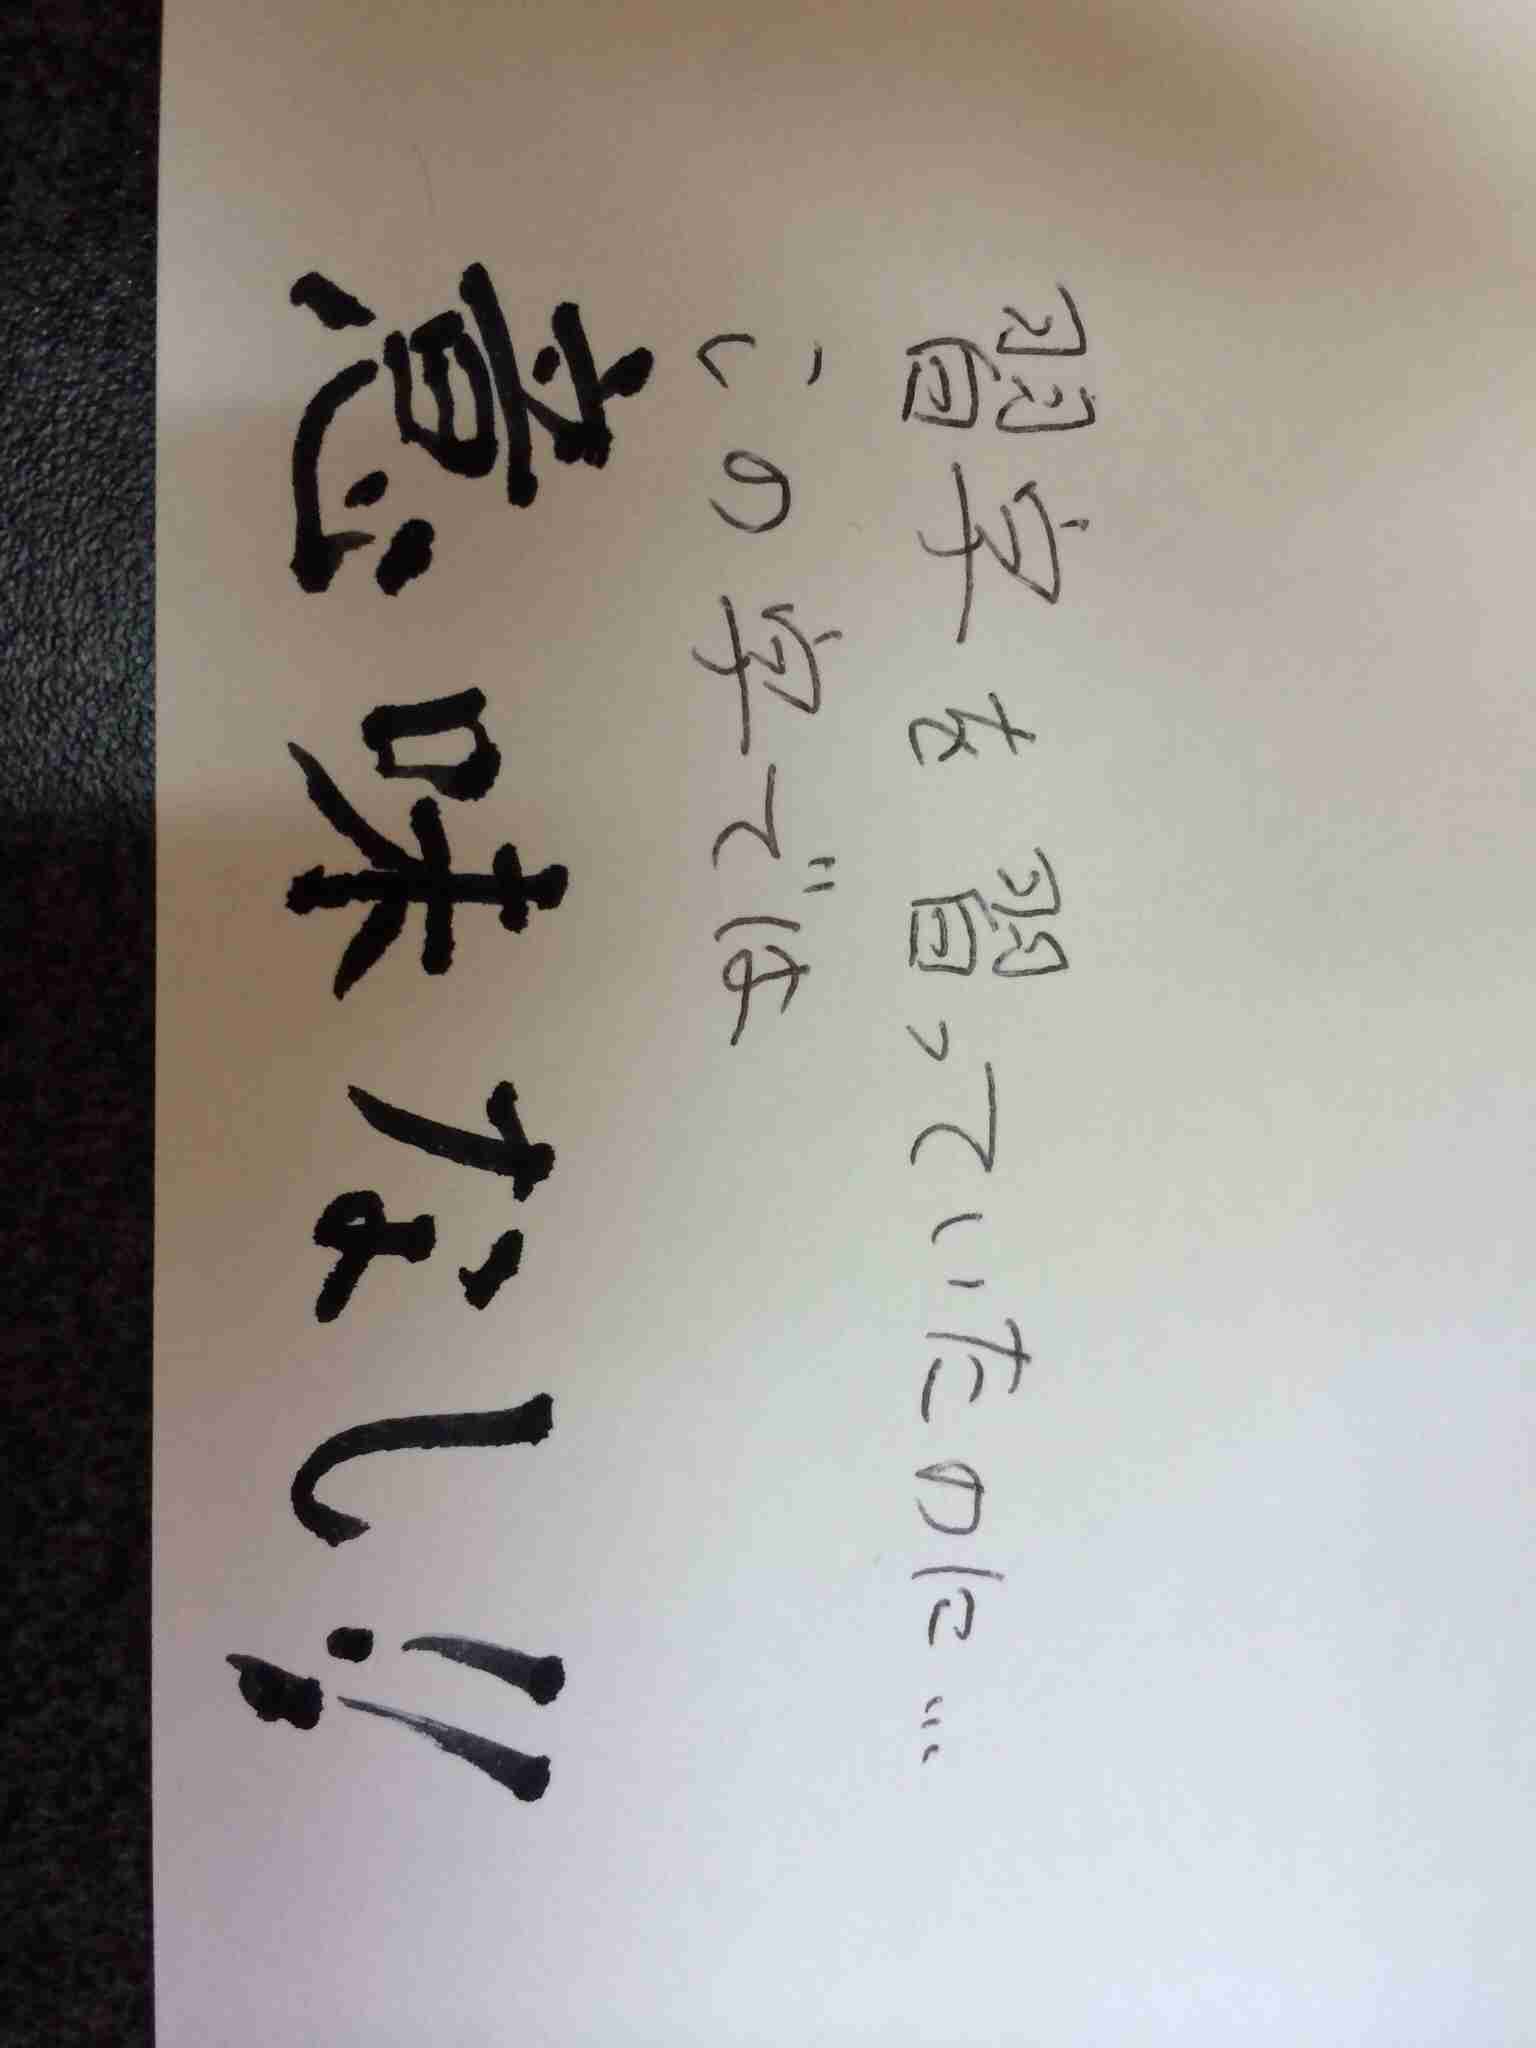 習字を習っていたのに…
この字では
意味なし!!